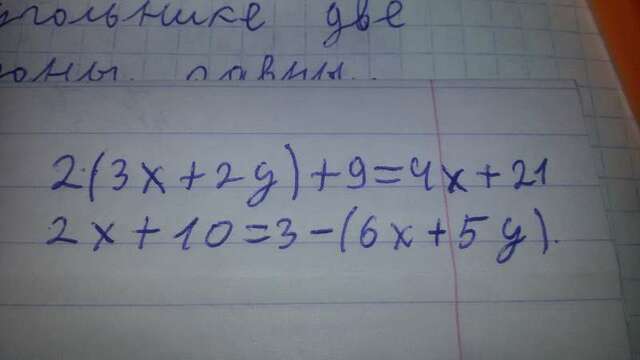 угольнике две
оны. равны..
2·(3x+2y)+9=4x+21
2x+10=3-(6x+5y).